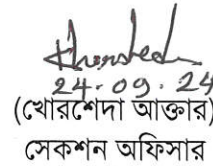 24.09.24
(খোরশেদা আক্তার)
সেকশন অফিসার